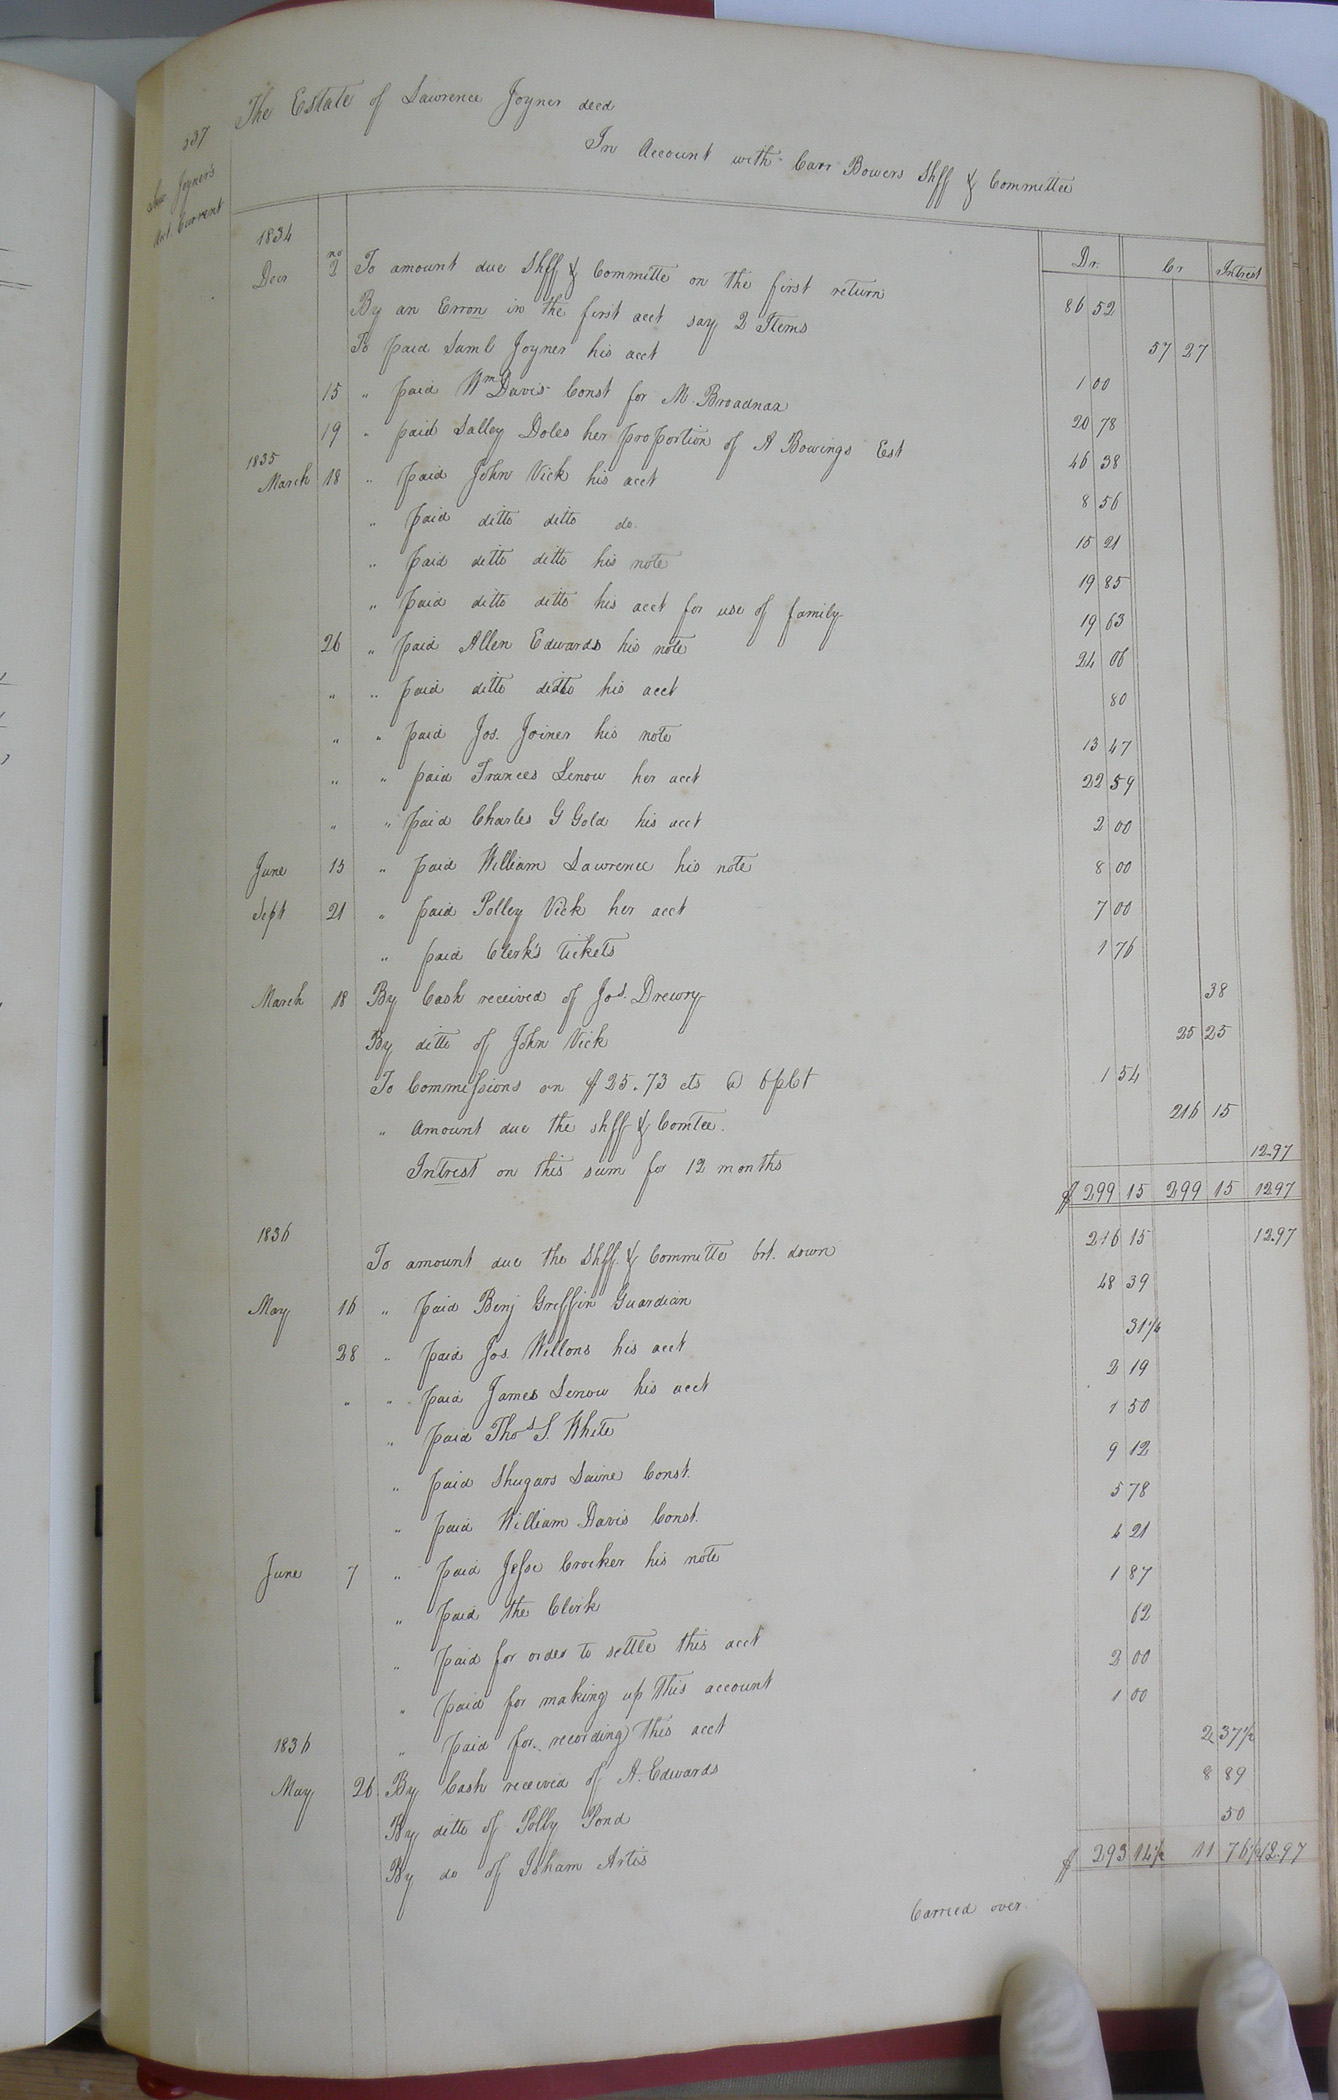 337
Law Joyner's
Act. Current
The Estate of Lawrence Joyner decd
In Account with Carr Bowers Shff & Committee
Dr. Cr Intrest
1834
Decr no 2 To amount due Shff & Committe on the first return 86 52
By an Erron in the first acct say 2 Items 57 27
To paid Saml Joyner his acct 1 00
15 " paid Wm Davis Const for M. Broadnax 20 78
19 " paid Salley Doles her proportion of A Bowings Est 46 38
1835
March 18 " paid John Vick his acct 8 56
" paid ditto ditto do. 15 21
" paid ditto ditto his note 19 85
" paid ditto ditto his acct for use of family 19 63
26 " paid Allen Edwards his note 24 06
" " paid ditto ditto his acct 80
" " paid Jos. Joiner his note 13 47
" " paid Frances Lenow her acct 22 59
" " paid Charles G Gold his acct 2 00
June 15 " paid William Lawrence his note 8 00
Sept 21 " paid Polley Vick her acct 7 00
" paid Clerk's tickets 1 76
March 18 By Cash received of Jos. Drewry 38
By ditto of John Vick 25 25
To Commissions on $25.73 cts @ 6 pCt 1 54
" Amount due the shff & Comtee. 216 15
Intrest on this sum for 12 months 12.97
$ 299 15 299 15 12.97
1836
To amount due the Shff. & Committe brt. down 216 15 12.97
May 16 " paid Benj Griffin Guardian 48 39
28 " paid Jos. Wellons his acct 31 1/4
" " paid James Lenow his acct 2 19
" paid Thos S. White 1 50
" paid Shugars Saine Const. 9 12
" paid William Davis Const. 5 78
June 7 " paid Jesse Crocker his note 4 21
" paid the Clerk 1 87
" paid for order to settle this acct 62
" paid for making up this account 2 00
" paid for recording this acct 1 00
1836
May 26 By Cash received of A. Edwards 2 37 1/2
By ditto of Polly Pond 8 89
By do of Isham Artis 50
$ 293 14 1/4 11 76 1/2 12.97
Carried over.